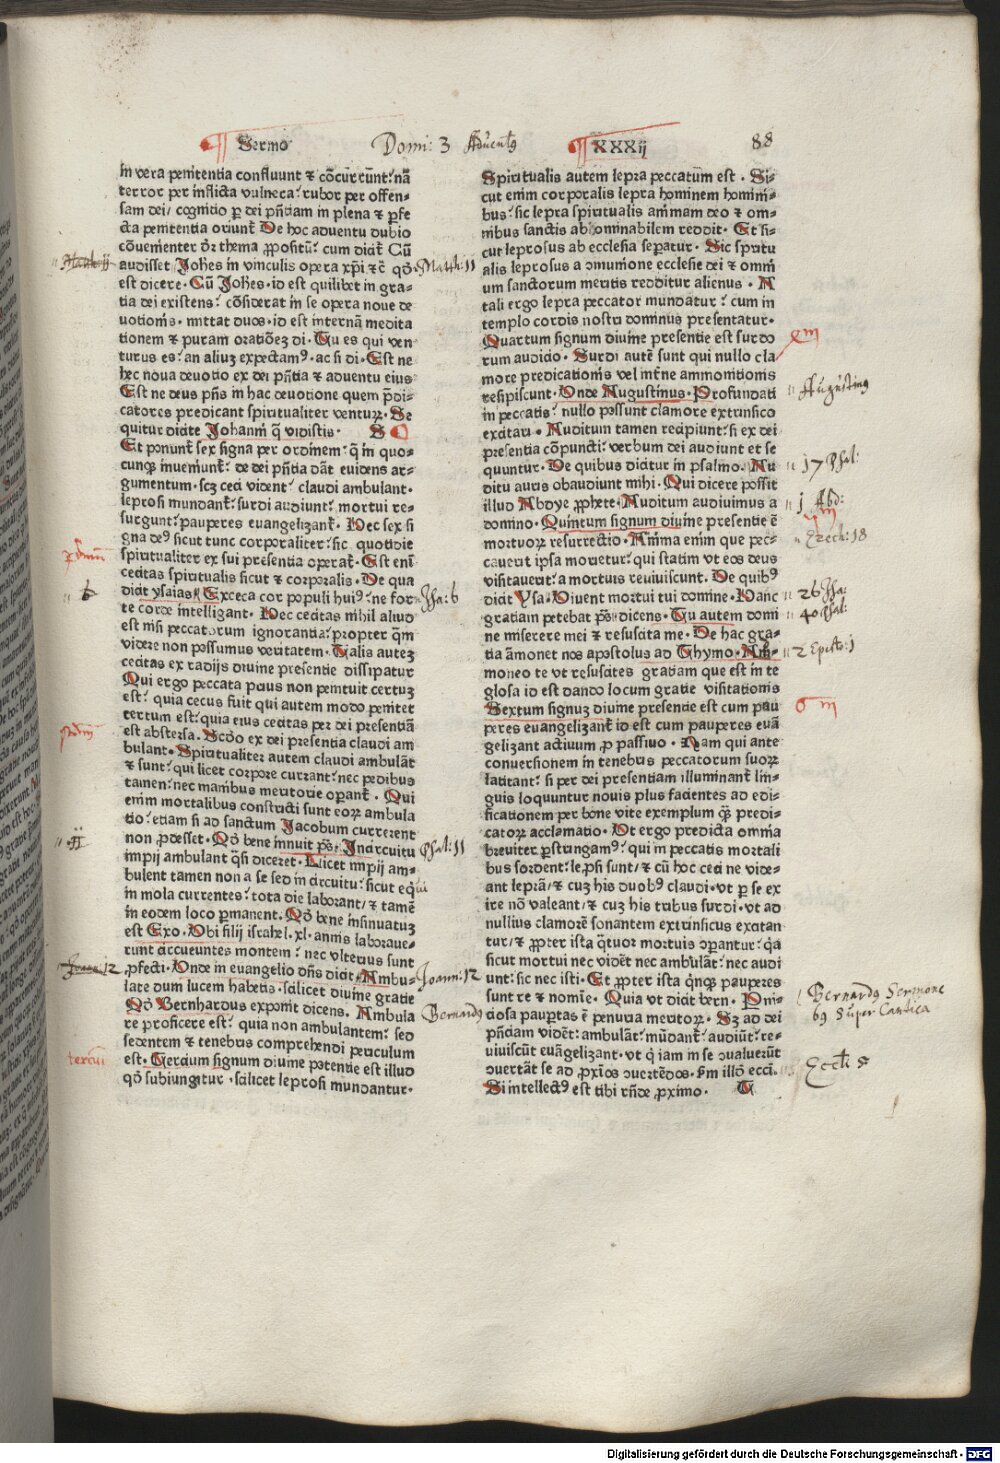 Sermo
Domi: 3 Aduent9
XXXij
88
in vera penitentia confluunt ⁊ cōcurrūnt: nā
terror per inflicta vulnera: rubor per offen-
sam dei/ cognitio ꝑ dei pn̄tiam in plena ⁊ ꝑfe
cta penitentia oriunt̄ De hoc aduentu dubio
cōuenienter dr̄ thema ꝓpositū: cum dicit̄ Cū
audisset Joh̄es in vinculis opera xp̄i ⁊c̄ qd̄.
est dicere. Cū Joh̄es. id est quilibet in gra-
tia dei existens: cōsiderat in se opera noue de
uotionis. mittat duos. id est internā medita
tionem ⁊ puram oratiōeʒ di. Tu es qui ven
turus es: an aliuʒ expectam9. ac si di. Est ne
hec noua deuotio ex dei pn̄tia ⁊ aduentu eius
Est ne deus pn̄s in hac deuotione quem p̄di-
catores predicant spiritualiter venturꝝ. Se
quitur dicite Johanni q̄ vidistis. B
Et ponunt̄ sex signa per ordinem: q̄ in quo-
cunqꝫ inueniunt̄: de dei pn̄tia dāt euidens ar-
gumentum. scʒ ceci vident: claudi ambulant.
leprosi mundant̄: surdi audiunt: mortui re-
surgunt: pauperes euangelizant̄. Hec sex si
gna de9 sicut tunc corporaliter: sic quotidie
spiritualiter ex sui presentia operat̄. Est eni
cecitas spiritualis sicut ⁊ corporalis. De qua
dicit ysaias Exceca cor populi hui9: ne for
te corde intelligant. Hec cecitas nihil aliud
est nisi peccatorum ignorantia: propter q̄m
videre non possumus veritatem. Talis auteʒ
cecitas ex radijs diuine presentie dissipatur
Qui ergo peccata prius non penituit certuʒ
est: quia cecus fuit qui autem modo penitet
certum est: quia eius cecitas per dei presentiā
est abstersa. Scdo ex dei presentia claudi am
bulant. Spiritualiter autem claudi ambulāt
⁊ sunt: qui licet corpore currant: nec pedibus
tamen: nec manibus meritorie operant̄. Qui
enim mortalibus constricti sunt eorꝝ ambula
tio: etiam si ad sanctum Jacobum currerent
non ꝓdesset. Qd̄ bene innuit ps̄. In circuitu
impij ambulant q̄si diceret. Licet impij am-
bulent tamen non a se sed in circuitu: sicut eq̄
in mola currentes: tota die laborant/ ⁊ tamē
in eodem loco ꝑmanent. Qd̄ bene insinuatuʒ
est Exo. Ubi filij israhel. xl. annis laboraue-
runt circueuntes montem: nec vlterius sunt
ꝓfecti. Unde in euangelio dn̄s dicit Ambu-
late dum lucem habetis. scilicet diuine gratie
Qd̄ Bernhardus exponit dicens. Ambula
re proficere est: quia non ambulantem: sed
sedentem ⁊ tenebras comprehendi periculum
est. Tercium signum diuine potentie est illud
qd̄ subiungitur. scilicet leprosi mundantur.
Matth: 11
b
Jsa: 6
Psal: 11
Joann: 12
Bernard9
Spiritualis autem lepra peccatum est. Si-
cut enim corporalis lepra hominem homini-
bus: sic lepra spiritualis animam deo ⁊ om-
nibus sanctis abhominabilem reddit. Et si-
cut leprosus ab ecclesia separatur. Sic spiritu
alis leprosus a ↄmunione ecclesie dei ⁊ omni
um sanctorum meritis redditur alienus. A
tali ergo lepra peccator mundatur: cum in
templo cordis nostri dominus presentatur.
Quartum signum diuine presentie est surdo
rum auditio. Surdi autē sunt qui nullo cla
more predicationis vel int̄ne ammonitionis
resipiscunt. Unde Augustinus. Profundati
in peccatis: nullo possunt clamore extrinsico
excitari. Auditum tamen recipiunt: si ex dei
presentia cōpuncti: verbum dei audiunt et se
quuntur. De quibus dicitur in psalmo. Au
ditu auris obaudiunt mihi. Qui dicere possit
illud Abdye ꝓphete. Auditum audiuimus a
domino. Quintum signum diuine presentie ē
mortuorꝝ resurrectio. Anima enim que pec-
cauerit ipsa morietur: qui statim vt eos deus
visitauerit a mortuis reuiuiscunt. De quib9
dicit Ysa. Uiuent mortui tui domine. Hanc
gratiam petebat ps̄. dicens. Tu autem domi
ne miserere mei ⁊ resuscita me. De hac gra-
tia āmonet nos apostolus ad Thymo. Am-
moneo te vt resuscites gratiam que est in te
glosa id est dando locum gratie visitationis
Sextum signuʒ diuine presentie est cum pau
peres euangelizant̄ id est cum pauperes euā
gelizant actiuum ꝓ passiuo. Nam qui ante
conuersionem in tenebris peccatorum suorꝝ
latitant: si per dei presentiam illuminant̄ lin-
guis loquuntur nouis plus facientes ad edi-
ficationem per bone vite exemplum qꝫ predi-
catorꝝ acclamatio. Ut ergo predicta omnia
breuiter ꝑstringam9: qui in peccatis mortali
bus sordent: lep̄si sunt/ ⁊ cū hoc ceci ne vide-
ant leprā/ ⁊ cuʒ his duob9 claudi. vt ꝑ se ex
ire nō valeant/ ⁊ cuʒ his tribus surdi. vt ad
nullius clamorē sonantem extrinsicus excitan
tur/ ⁊ ꝓpter ista q̄tuor mortuis ↄparantur: q̄a
sicut mortui nec vidēt nec ambulāt: nec audi
unt: sic nec isti. Et ꝓpter ista q̄nqꝫ pauperes
sunt re ⁊ noīe. Quia vt dicit bern. Pni-
ciosa paupertas ē penuria meritorꝝ. Sʒ ad dei
pn̄tiam vidēt: ambulāt: mūdant̄: audiūt: re-
uiuiscūt euāgelizant. vt q̄ iam in se ↄualuerūt
ↄuertāt se ad ꝓxīos ↄuertēdos. s̄m illd̄ ecci.
Si intellect9 est tibi rn̄de ꝓximo. C
Augustin9
17 Psal:
1 Abd:
Ezech: 18
26 Jsa:
40 Psal:
2 Epist: 1
6 m
Bernard9 Sermone
Super Cantica
Eccli 5
Digitalisierung gefördert durch die Deutsche Forschungsgemeinschaft - DFG